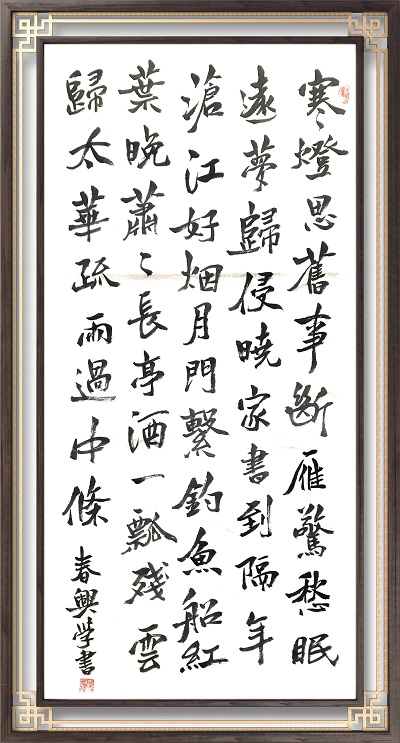 寒燈思舊事斷雁驚愁眠
遠夢歸侵曉家書到隔年
滄江好烟月門繫釣魚船紅
葉晚蕭〻長亭酒一瓢殘雲
歸太華疏雨過中條
春興学書